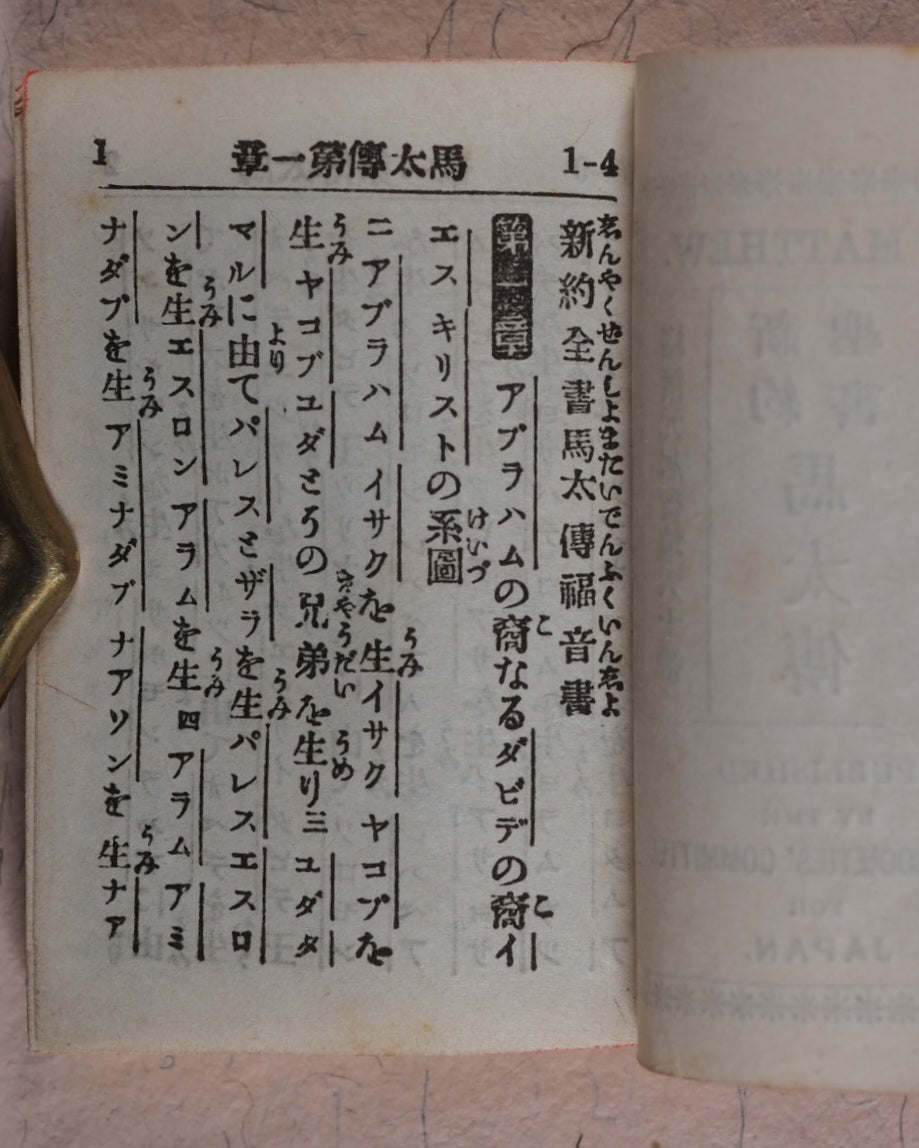 1-4 馬太傳第一章 1
志んやくぜんしよまたいでんふくいん志よ
新約全書馬太傳福音書
こ こ
アブラハムの裔なるダビデの裔イ
けいづ
エスキリストの系圖
うみ
二アブラハム イサクを生イサク ヤコブを
うみ きやうだい うめ
生ヤコブユダとその兄弟を生り三ユダタ
より うみ
マルに由てパレスとザラを生パレスエスロ
うみ うみ
ンを生エスロン アラムを生四アラム アミ
うみ うみ
ナダブを生アミナダブ ナアソンを生ナア